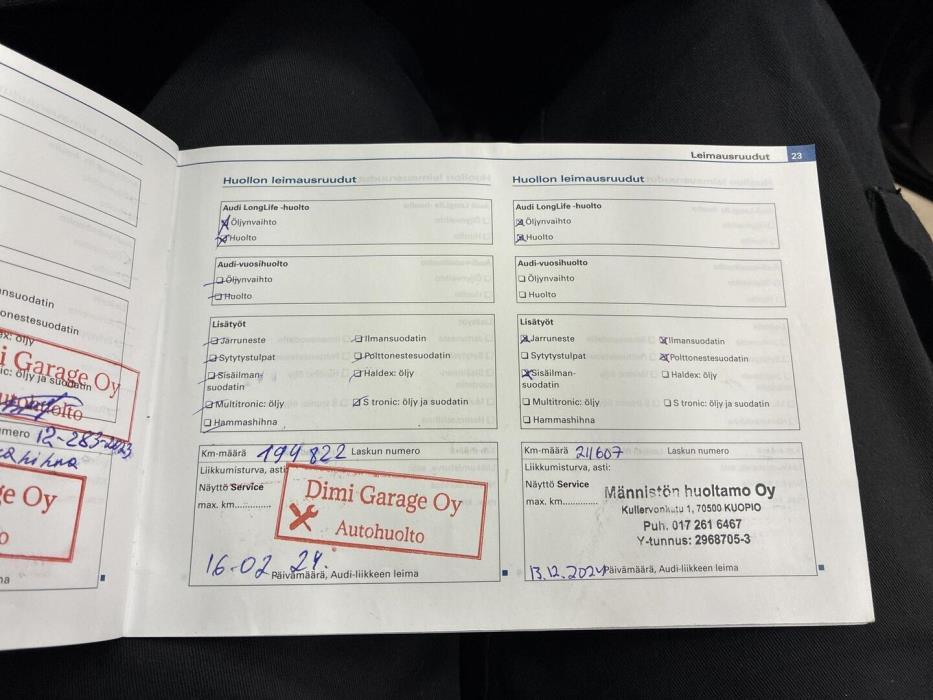 Leimausruudut 23
nsuodatin
onestesuodatin
ex: öljy
i Garage Oy
ic: öljy ja suodatin
utohuolto
mero 12-283-2023
ahihna
e Oy
o
na
Huollon leimausruudut
Audi LongLife -huolto
Öljynvaihto
Huolto
Audi-vuosihuolto
Öljynvaihto
Huolto
Lisätyöt
Jarruneste
Ilmansuodatin
Sytytystulpat
Polttonestesuodatin
Sisäilman-
suodatin
Haldex: öljy
Multitronic: öljy
S tronic: öljy ja suodatin
Hammashihna
Km-määrä 194822 Laskun numero
Liikkumisturva, asti:
Näyttö Service
max. km.............
Dimi Garage Oy
Autohuolto
16-02 24.
Päivämäärä, Audi-liikkeen leima
Huollon leimausruudut
Audi LongLife -huolto
Öljynvaihto
Huolto
Audi-vuosihuolto
Öljynvaihto
Huolto
Lisätyöt
Jarruneste
Ilmansuodatin
Sytytystulpat
Polttonestesuodatin
Sisäilman-
suodatin
Haldex: öljy
Multitronic: öljy
S tronic: öljy ja suodatin
Hammashihna
Km-määrä 211607 Laskun numero
Liikkumisturva, asti:
Näyttö Service
max. km.............
Männistön huoltamo Oy
Kullervonkatu 1, 70500 KUOPIO
Puh. 017 261 6467
Y-tunnus: 2968705-3
13.12.2024 Päivämäärä, Audi-liikkeen leima